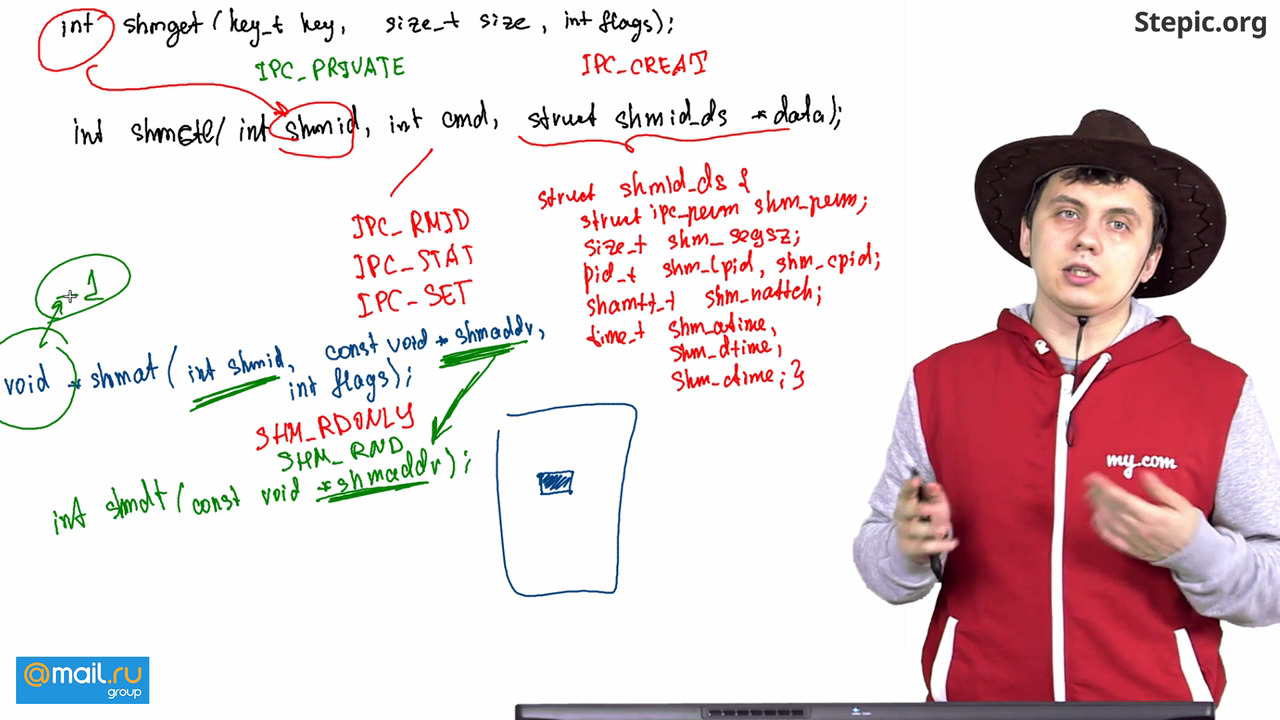 Stepic.org
int shmget (key_t key, size_t size, int flags);
IPC_PRIVATE IPC_CREAT
int shmctl( int shmid, int cmd, struct shmid_ds *data);
IPC_RMID
IPC_STAT
IPC_SET
struct shmid_ds {
struct ipc_perm shm_perm;
size_t shm_segsz;
pid_t shm_lpid, shm_cpid;
shmatt_t shm_nattch;
time_t shm_atime,
shm_dtime,
shm_ctime; }
-1
void *shmat ( int shmid, const void * shmaddr,
int flags);
SHM_RDONLY
SHM_RND
int shmdt ( const void *shmaddr);
my.com
@mail.ru
group